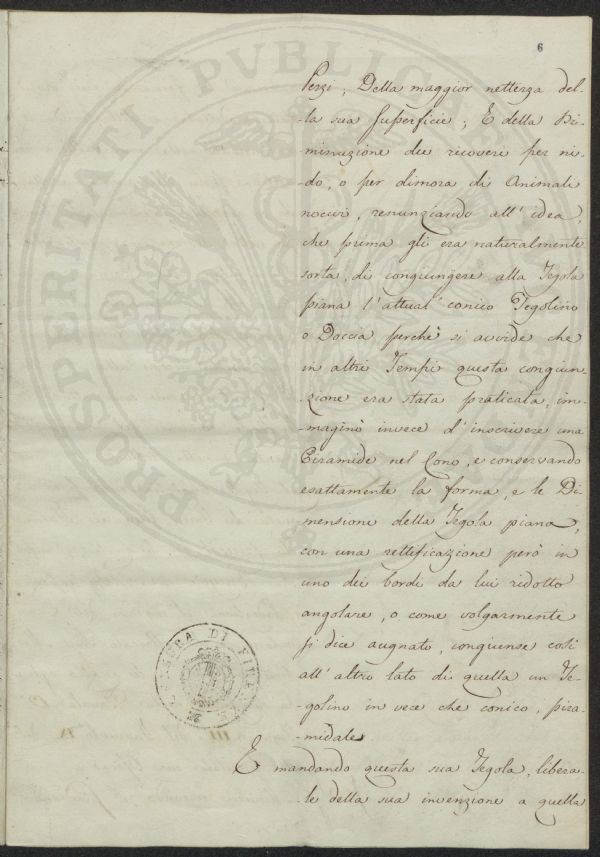 6
Pezzi; Della maggior nettezza del-
-la sua Superficie; E della Di-
minuzione dei ricoveri per ni-
-do, o per dimora di Animali
nocivi, renunziando all'idea,
che prima gli era naturalmente
sorta, di congiungere alla Tegola
piana l'attual conico Tegolino
o Doccia perchè si avvide che
in altri Tempi questa congiun-
-zione era stata praticata, im-
-maginò invece d'inscrivere una
Piramide nel Cono, e conservando
esattamente la forma, e le Di-
mensioni della Tegola piana,
con una rettificazione però in
uno dei bordi da lui ridotto
angolare, o come volgarmente
si dice augnato, congiunse così
all'altro lato di quella un Te-
golino in vece che conico, pira-
-midale.
E mandando questa sua Tegola, libera-
-le della sua invenzione a quella
PROSPERITATI PVBLICAE
CAMERA DI